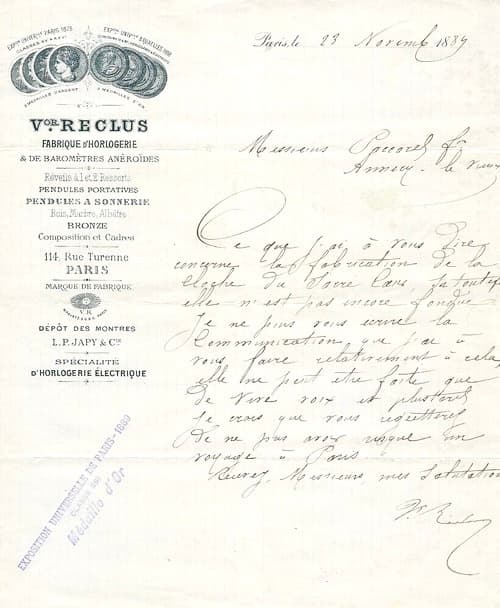 EXPᵒⁿ UNIVERˡˡᵉ PARIS 1878
EXPᵒⁿ UNIVˡˡᵉ
2 MEDAILLES D'ARGENT
2 MEDAILLES D'OR
Vᵒᴿ RECLUS
FABRIQUE D'HORLOGERIE
& DE BAROMÈTRES ANÉROÏDES
Réveils à 1 et 2 Ressorts
PENDULES PORTATIVES
PENDULES A SONNERIE
Bois, Marbre, Albâtre
BRONZE
Composition et Cadres
114, Rue Turenne
PARIS
MARQUE DE FABRIQUE
V.R
DÉPÔT DES MONTRES
L.P. JAPY & Cⁱᵉ
SPÉCIALITÉ
D'HORLOGERIE ÉLECTRIQUE
EXPOSITION UNIVERSELLE DE PARIS - 1889
Médaille d'Or
Paris, le 23 Novemb 1889
Messieurs Paccard
Annecy - le vieux
Ce que j'ai à vous dire
concerne la fabrication de la
cloche du Sacré Cœur, si toutefois
elle n'est pas encore fondue
Je ne puis vous écrire la
Communication que j'ai à
vous faire relativement à cela,
elle ne peut être faite que
de vive voix et
Je crois que vous regretterez
de ne pas avoir risqué un
voyage à Paris
Recevez, Messieurs mes Salutations
Vʳ Reclus